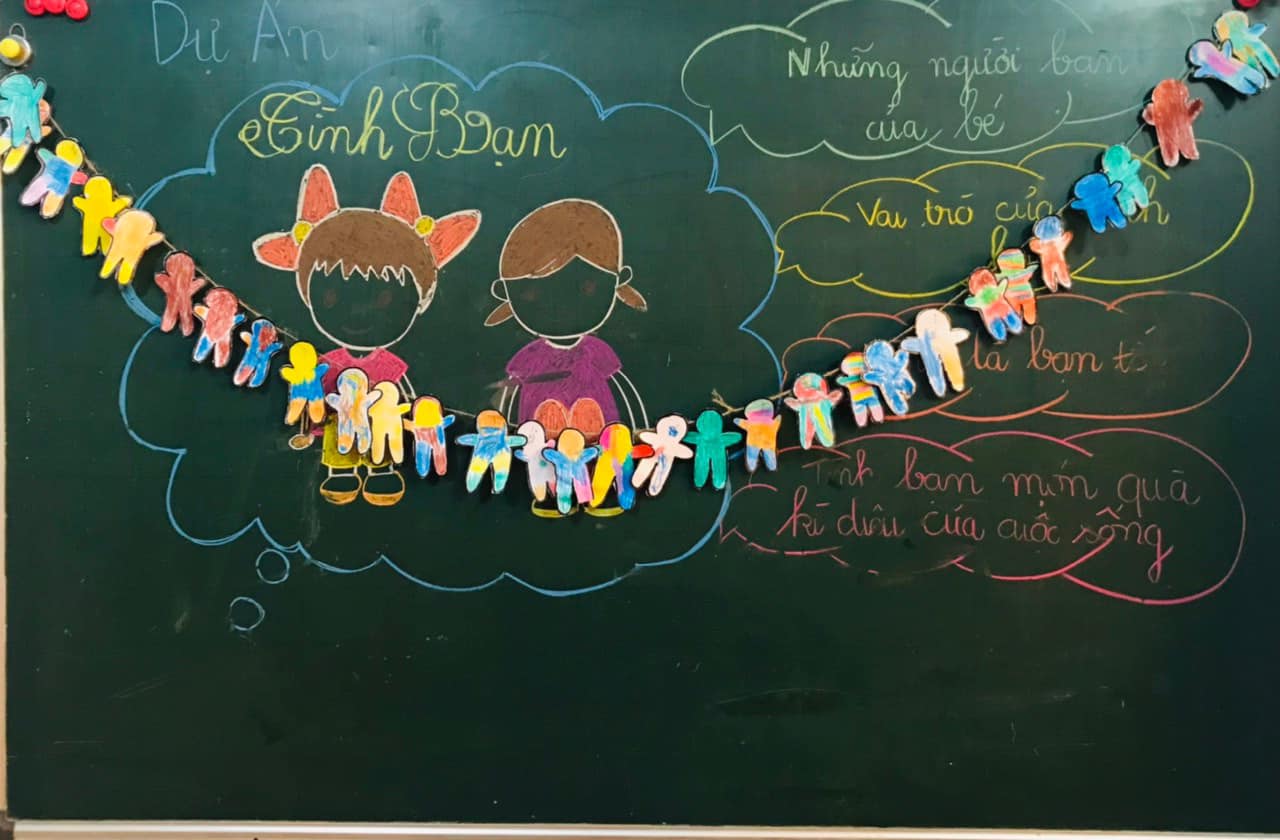 Dự Án
Tình Bạn
Những người bạn
của bé
Vai trò của
là bạn
Tình bạn món quà
kì diệu của cuộc sống